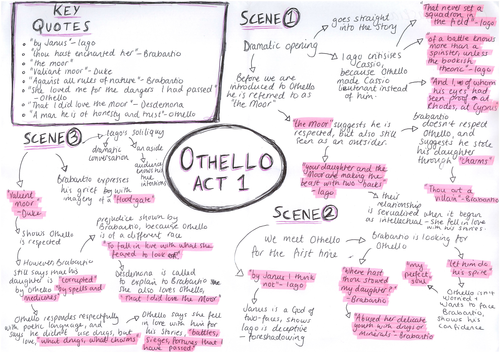 KEY
QUOTES
• "by Janus" - Iago
• "thou hast enchanted her" - Brabantio
• "the moor"
• "Valiant moor" - Duke
• "Against all rules of nature" - Brabantio
• "She loved me for the dangers I had passed"
- Othello
• "That I did love the moor" - Desdemona
• "A man he is of honesty and trust" - Othello
OTHELLO
ACT 1
SCENE 1
Dramatic opening
goes straight
into the story
Before we are
introduced to Othello
he is referred to as
"the Moor"
Iago critisises
Cassio,
because Othello
made Cassio
lieutenant instead
of him.
"That never set a
squadron in
the field" - Iago
"of a battle knows
more than a
spinster, unless the
bookish
theoric" - Iago
"And I, of whom
his eyes had
seen proof at
Rhodes, at Cyprus"
"the Moor" suggests he is
respected, but also still
seen as an outsider.
"your daughter and the
Moor are making the
beast with two backs"
- Iago
their
relationship
is sexualised when it began
as intellectual - she fell in love
with his stories.
Brabantio
doesn't respect
Othello, and
suggests he stole
his daughter
through "charms"
"Thou art a
villain" - Brabantio
SCENE 2
We meet Othello
for the first time
"by Janus I think
not" - Iago
Janus is a God of
two-faces, shows
Iago is deceptive
- foreshadowing
Brabantio is looking for
Othello
"where hast
thou stowed my
daughter?"
- Brabantio
"Abused her delicate
youth with drugs or
minerals" - Brabantio
"my
perfect
soul"
"let him do
his spite"
Othello isn't
worried +
wants to face
Brabantio,
shows his
confidence
SCENE 3
Iago's soliloquy
dramatic
conversation
an aside
audience
knows his
true
intentions
"Valiant
moor"
- Duke
shows Othello
is respected
Brabantio expresses
his grief by with
imagery of a "flood-gate"
However Brabantio
still says that his
daughter is "corrupted"
by Othello "by spells and
medicines"
Othello responds respectfully
with poetic language, and
says he didn't use drugs, but
love, "what drugs, what charms"
prejudice shown by
Brabantio, because Othello
is of a different race
"to fall in love with what she
feared to look on"
Desdemona is called
to explain to Brabantio
she also loves Othello,
"That I did love the Moor"
Othello says she fell
in love with him for
his stories, "battles,
sieges, fortunes that I
have passed"